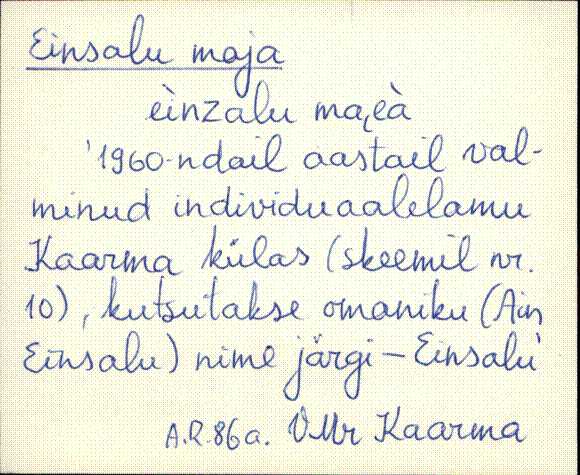 Einsalu maja
èinzalu ma̭eà
'1960-ndail aastail val-
minud individuaalelamu
Kaarma külas (skeemil nr.
10), kutsutakse omaniku (Ain
Einsalu) nime järgi – Einsalu'
A.R. 86a. VMr Kaarma